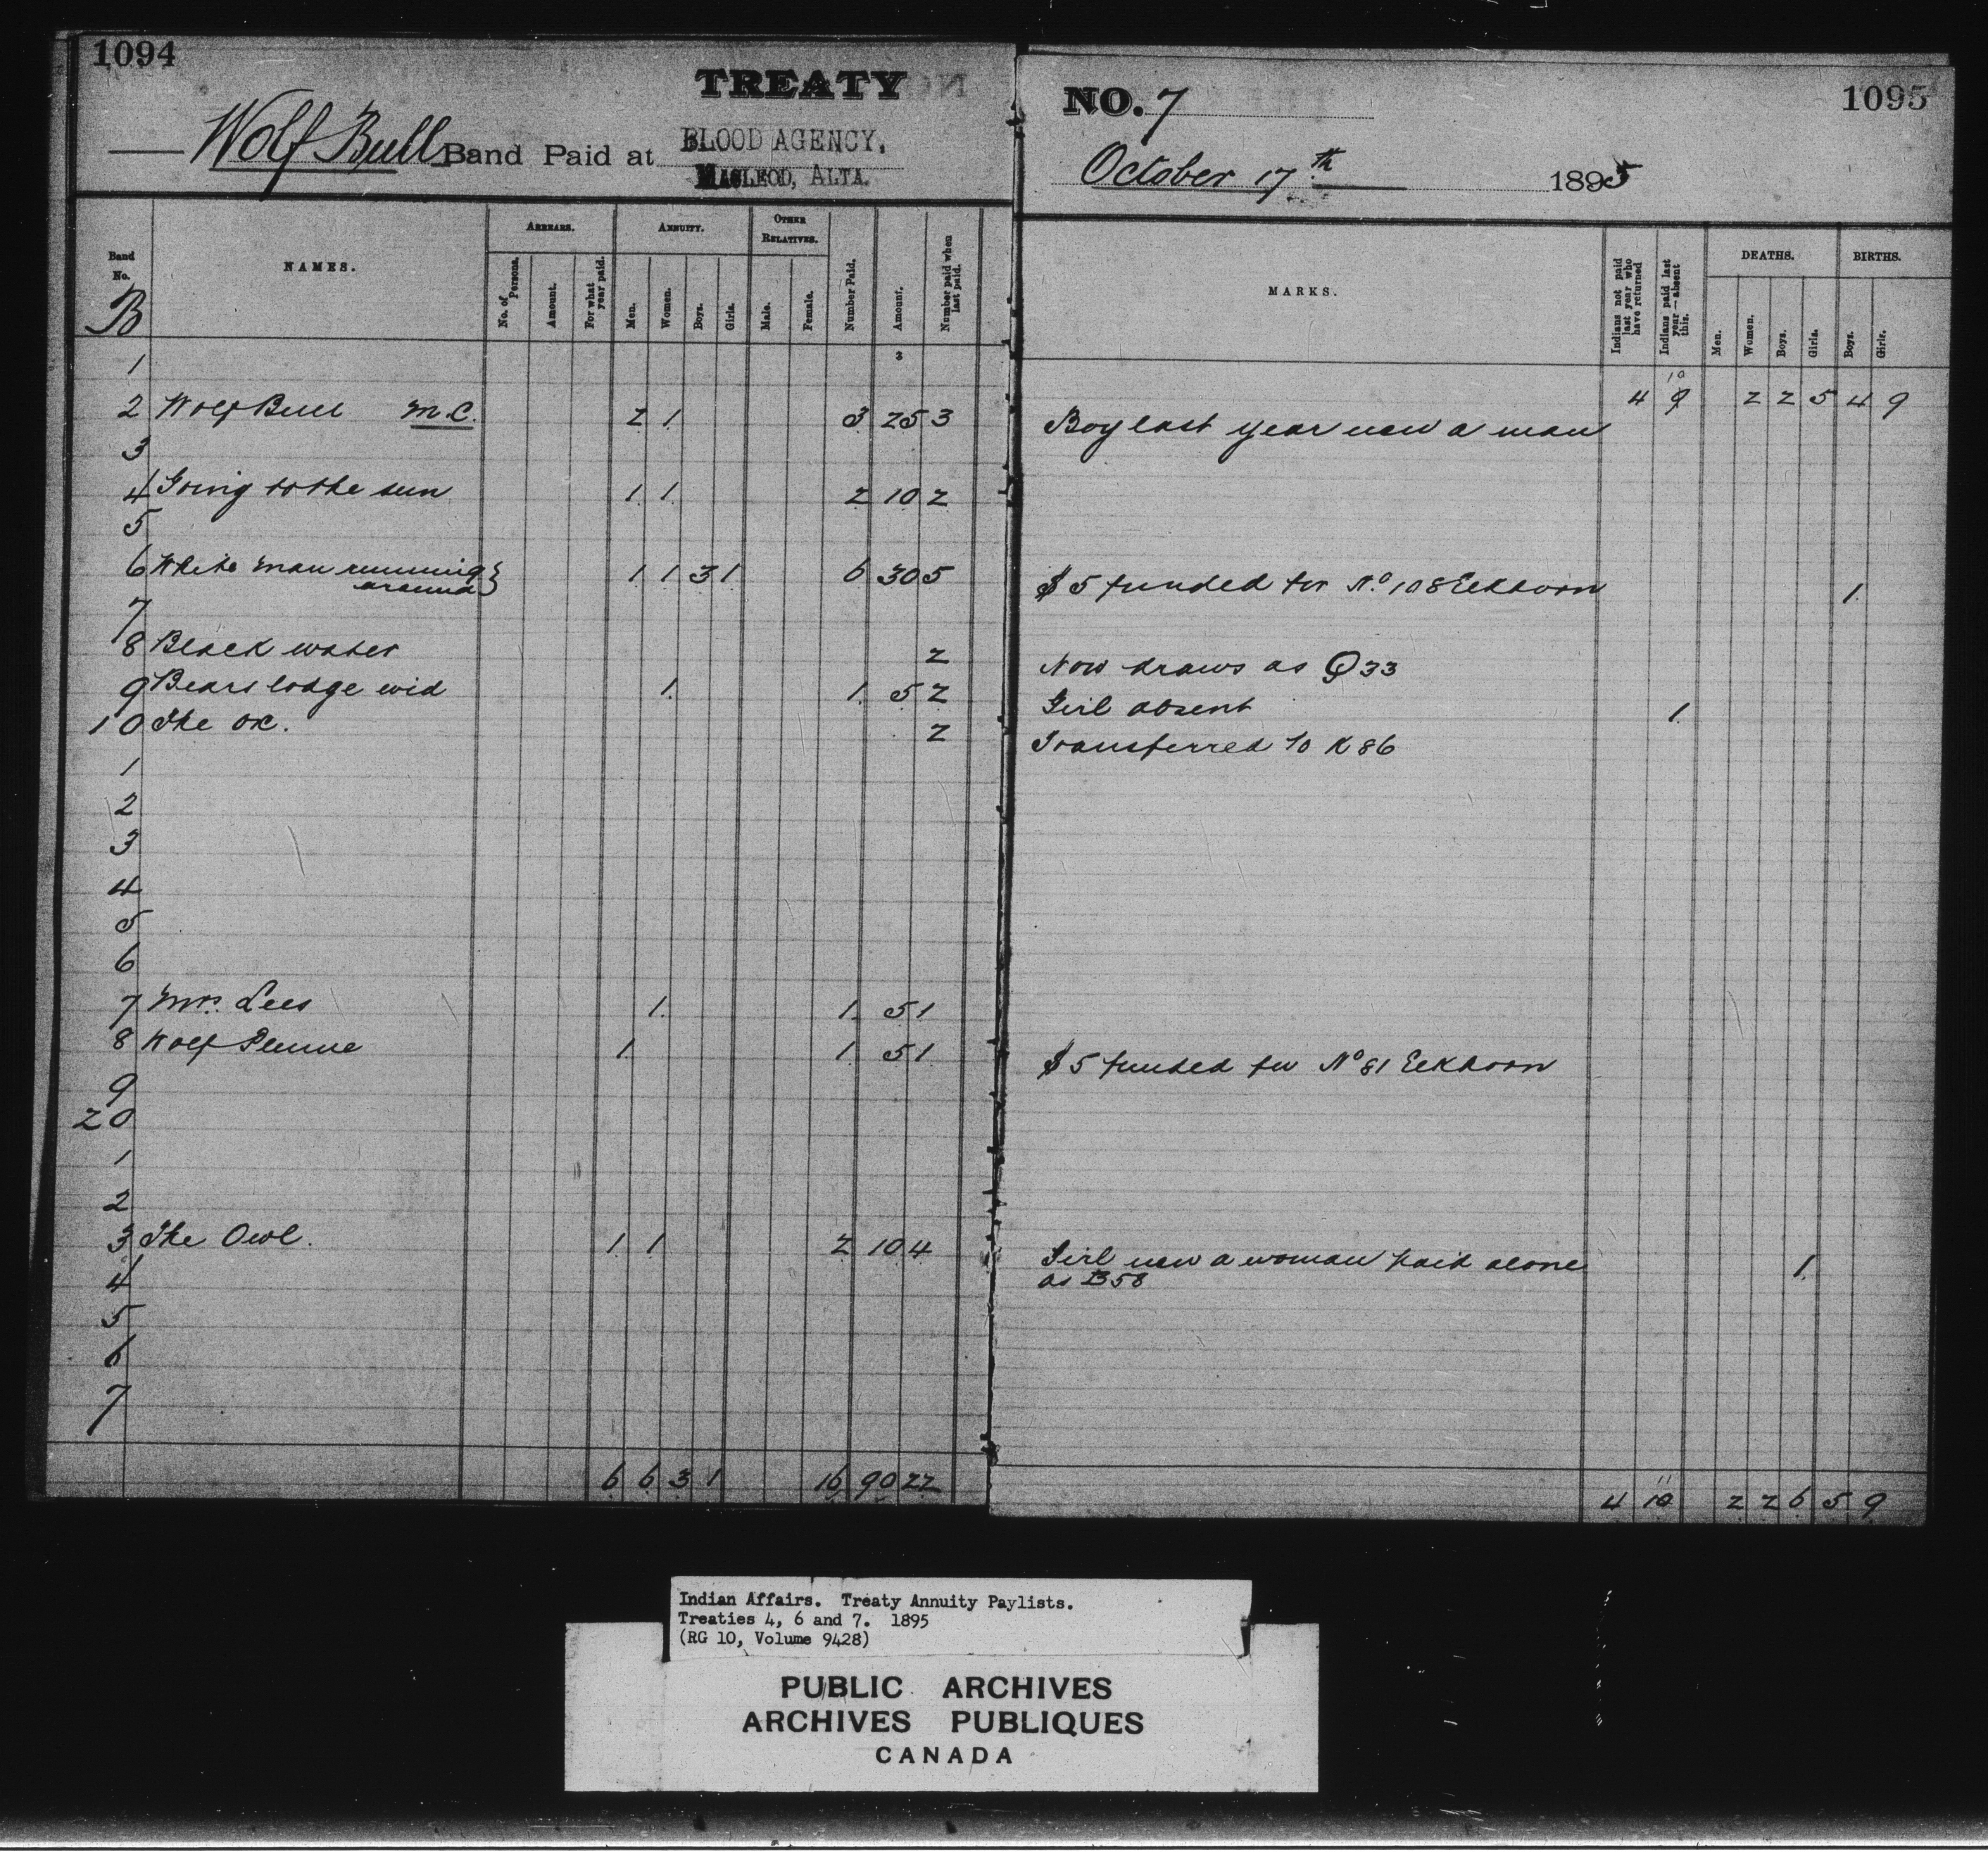 1094
TREATY
Wolf Bull Band Paid at BLOOD AGENCY,
MACLEOD, ALTA.
NO. 7
1095
October 17th 1895
Band No.
B
NAMES.
ARREARS.
No. of Persons.
Amount.
For what year paid.
ANNUITY.
Men.
Women.
Boys.
Girls.
OTHER RELATIVES.
Male.
Female.
Number Paid.
Amount.
Number paid when last paid.
MARKS.
Indians not paid last year who have returned
Indians paid last year—absent this.
DEATHS.
Men.
Women.
Boys.
Girls.
BIRTHS.
Boys.
Girls.
1
10
4 9 2 2 5 4 9
2 Wolf Bull M.C. 2 1 3 25 3 Boy last year now a man
3
4 Going to the sun 1 1 2 10 2
5
6 White man running around } 1 1 3 1 6 30 5 $5 funded for No. 108 Elkhorn 1
7
8 Black water 2 Now draws as Q33
9 Bears lodge wid 1 1 5 2 Girl absent 1
10 The ox. 2 Transferred to K86
1
2
3
4
5
6
7 Mrs. Lees 1 1 5 1
8 Wolf Plume 1 1 5 1 $5 funded for No 81 Elkhorn
9
20
1
2
3 The Owl. 1 1 2 10 4 Girl now a woman paid alone 1
4 as B58
5
6
7
6 6 3 1 16 90 22
11
4 10 2 2 6 5 9
Indian Affairs. Treaty Annuity Paylists.
Treaties 4, 6 and 7. 1895
(RG 10, Volume 9428)
PUBLIC ARCHIVES
ARCHIVES PUBLIQUES
CANADA